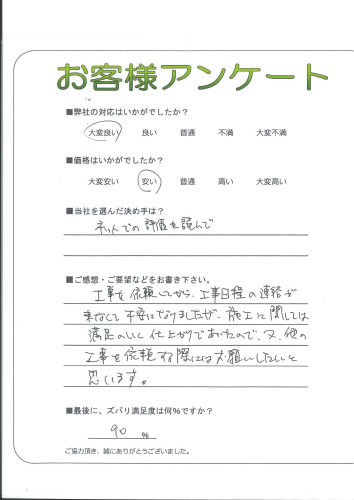 お客様アンケート
■弊社の対応はいかがでしたか?
大変良い 良い 普通 不満 大変不満
■価格はいかがでしたか?
大変安い 安い 普通 高い 大変高い
■当社を選んだ決め手は?
ネットでの評価を読んで
■ご感想・ご要望などをお書き下さい。
工事を依頼してから、工事日程の連絡が
来なくて不安になりましたが、施工に関しては
満足のいく仕上がりであったので、又、他の
工事を依頼する際にはお願いしたいと
思います。
■最後に、ズバリ満足度は何%ですか?
90 %
ご協力頂き、誠にありがとうございました。